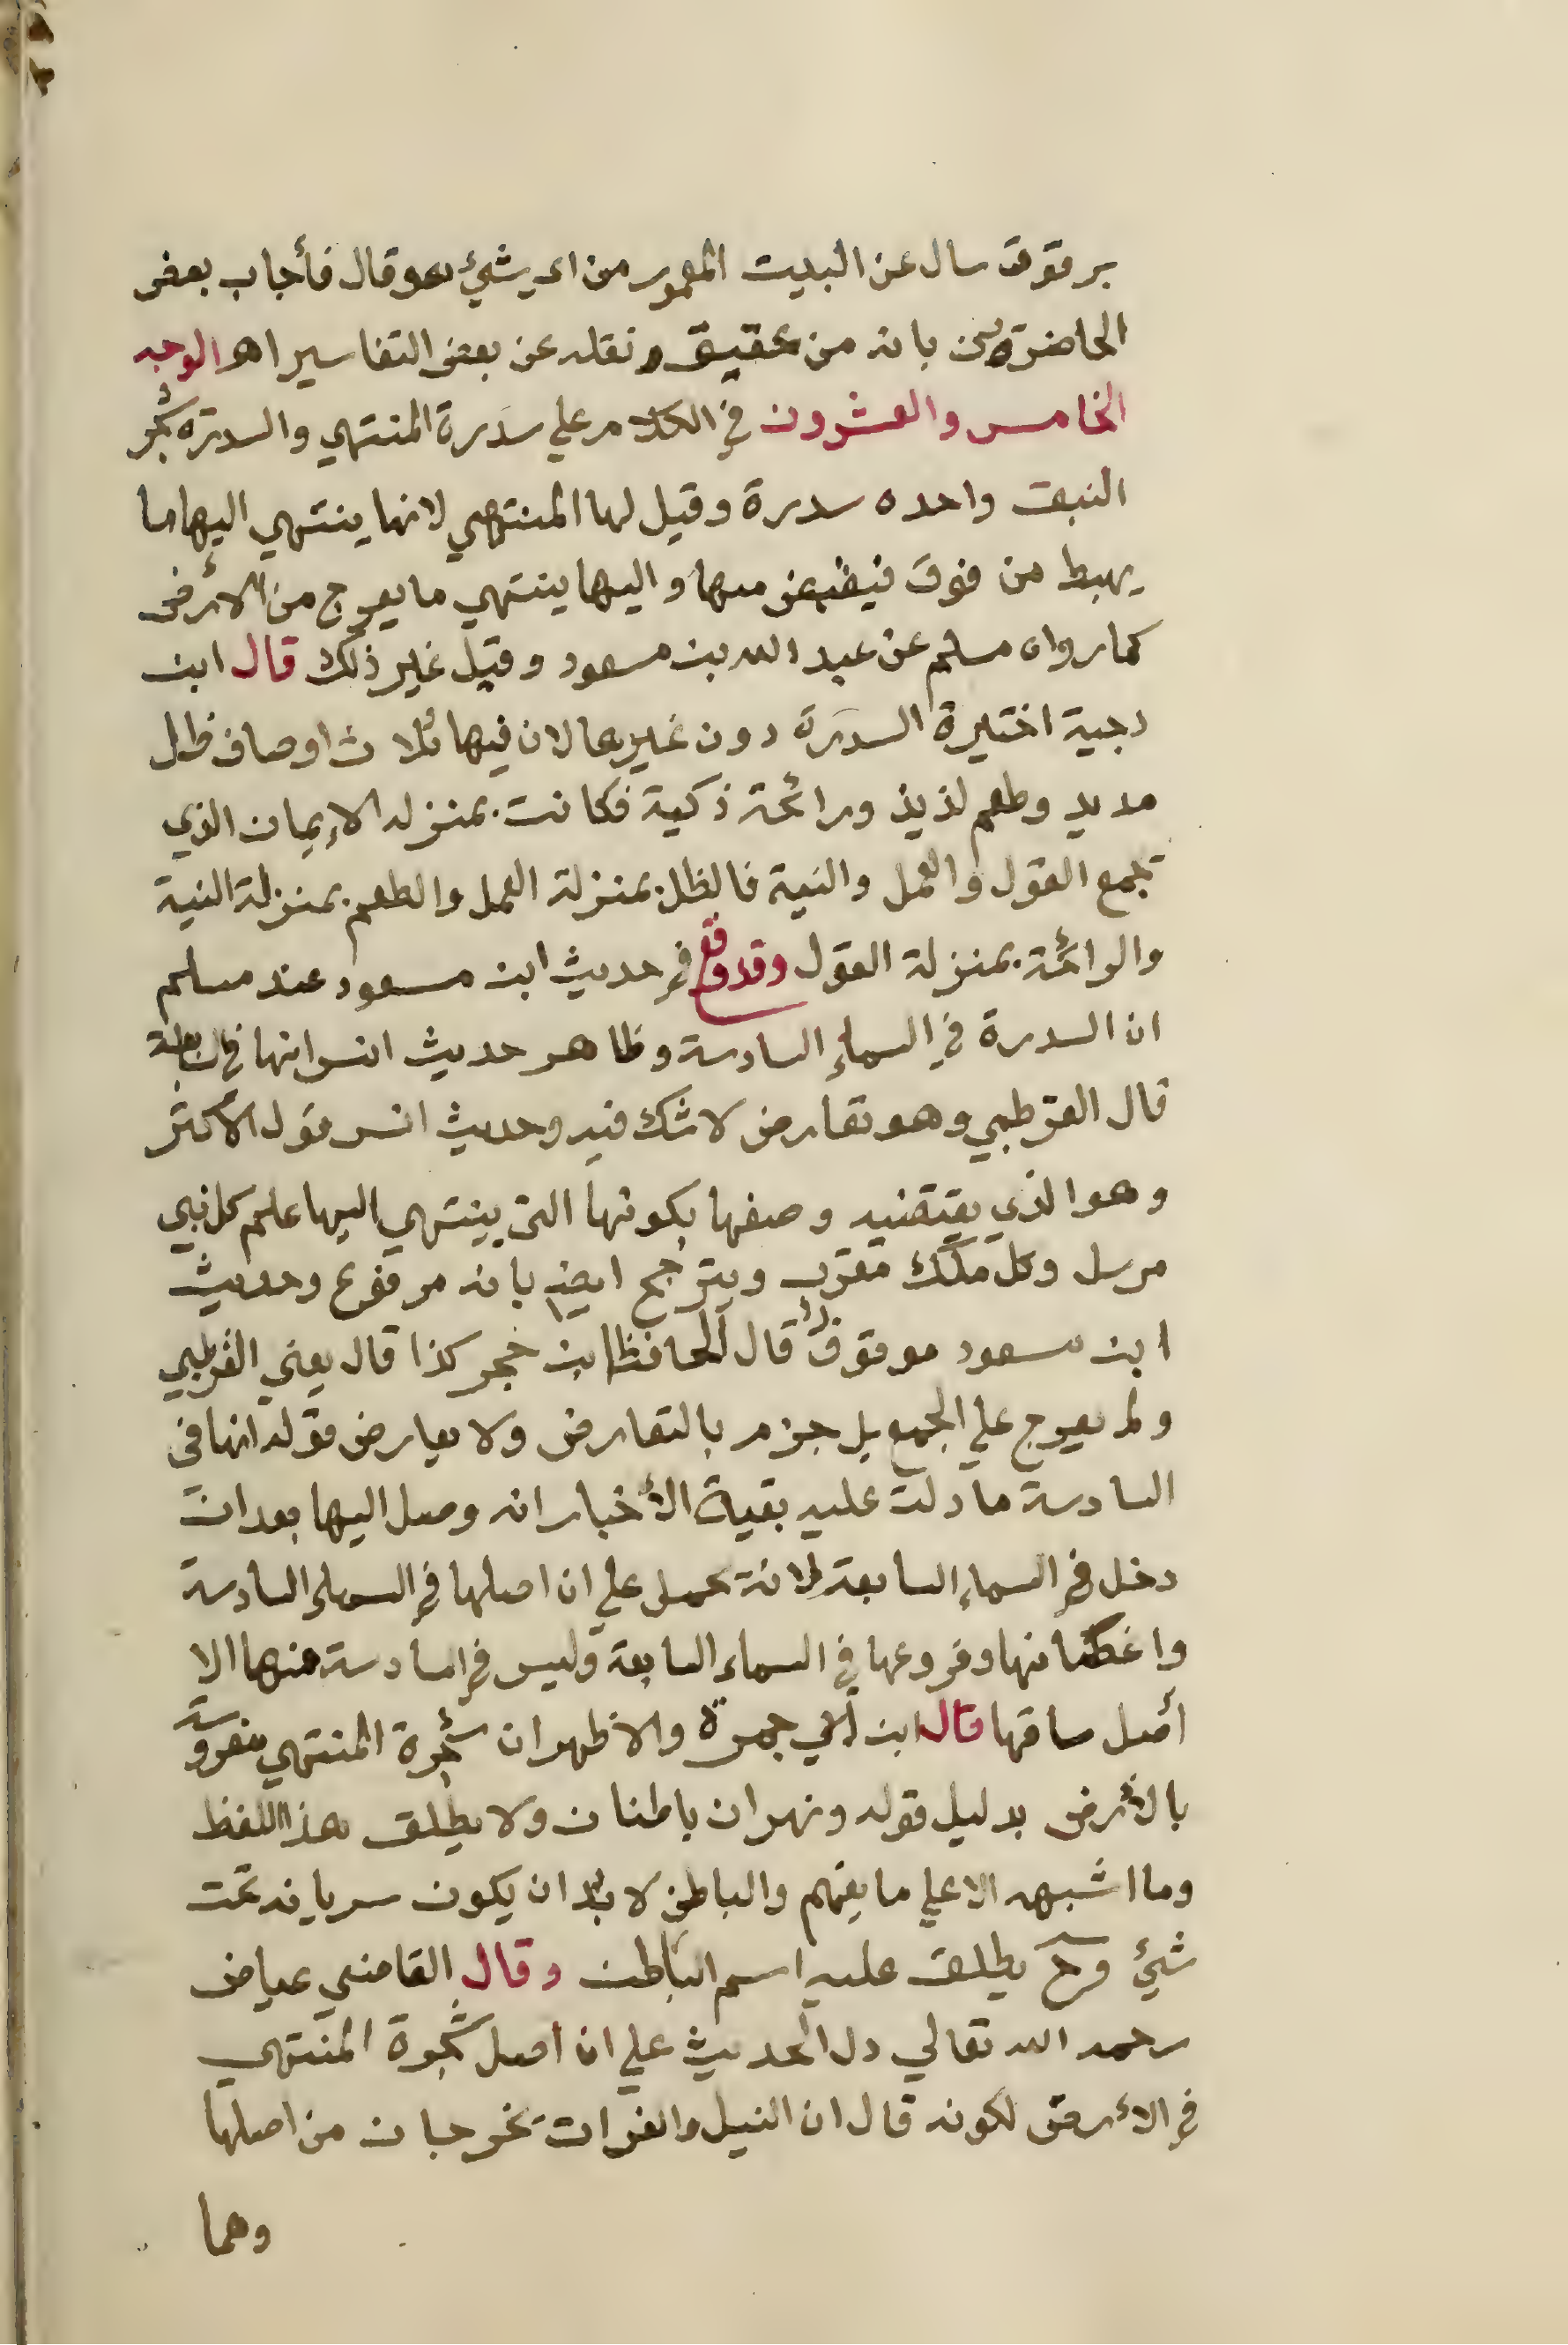 برقوق سال عن البيت المعمور من اى شيئ هو وقال فأجاب بعض
الحاضرين بانه من عقيق ونقله عن بعض التفاسير اهـ الوجه
الخامس والعشرون في الكلام علي سدرة المنتهي والسدرة شجر
النبق واحده سدرة وقيل لها المنتهي لانها ينتهي اليها ما
يهبط من فوق فيقبض منها واليها ينتهي ما يعرج من الأرض
كما رواه مسلم عن عبد الله بن مسعود وقيل غير ذلك قال ابن
دحية اختيرة السدرة دون غيرها لان فيها ثلاث اوصاف ظل
مديد وطعم لذيذ ورائحة ذكية فكانت بمنزله الإيمان الذي
تجمع القول والعمل والنية فالظل بمنزلة العمل والطعم بمنزلة النية
والرائحة بمنزلة القول وقد وقع في حديث ابن مسعود عند مسلم
ان السدرة في السماء السادسة وظاهر حديث انس انها في السابعة
قال القرطبي وهو تعارض لا شك فيه وحديث انس قول الأكثر
وهو الذي يقتضيه وصفها بكونها التي ينتهي اليها علم كل نبي
مرسل وكل ملك مقرب ويترجح ايضا بانه مرفوع وحديث
ابن مسعود موقوف قال الحافظ ابن حجر كذا قال يعني القرطبي
ولم يعرج علي الجمع بل جزم بالتعارض ولا يعارض قوله انها في
السادسة ما دلت عليه بقية الأخبار انه وصل اليها بعد ان
دخل في السماء السابعة لانه يحمل علي ان اصلها في السماء السادسة
واغصانها وفروعها في السماء السابعة وليس في السادسة منها الا
أصل ساقها قال ابن أبي جمرة والاظهر ان شجرة المنتهي مغروسة
بالأرض بدليل قوله ونهران باطنان ولا يطلق هذا اللفظ
وما اشبهه الا علي ما يفهم والباطن لا بد ان يكون سريانه تحت
شيئ وح يطلق عليه اسم الباطن وقال القاضي عياض
رحمه الله تعالي دل الحديث علي ان اصل شجرة المنتهي
في الأرض لكونه قال ان النيل والفرات يخرجان من اصلها
وهما